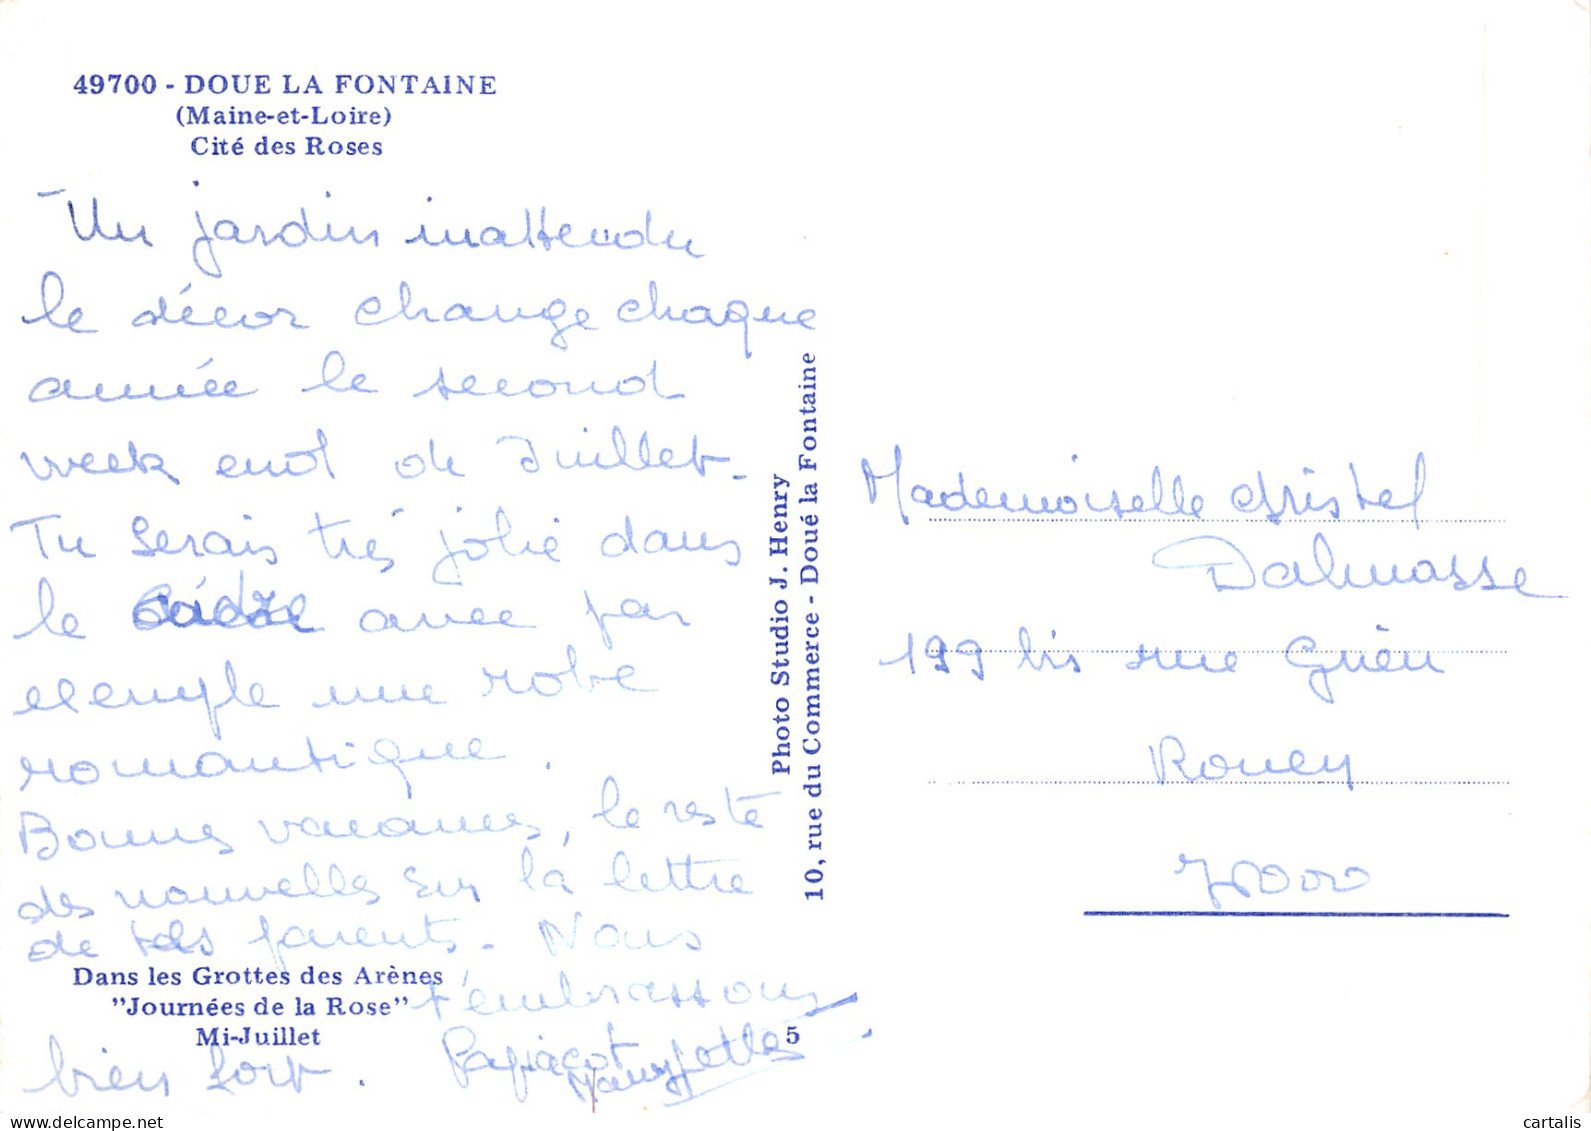 49700 - DOUE LA FONTAINE
(Maine-et-Loire)
Cité des Roses
Un jardin inattendu
le décor change chaque
année le second
week end de Juillet.
Tu serais très jolie dans
le cadre avec par
exemple une robe
romantique.
Bonnes vacances, le reste
des nouvelles sur la lettre
de tes parents. Nous
t'embrassons
bien fort.
Dans les Grottes des Arènes
"Journées de la Rose"
Mi-Juillet
5
Photo Studio J. Henry
10, rue du Commerce - Doué la Fontaine
Mademoiselle Christel
Dalmasse
199 bis rue
Rouen
76000
cartalis
www.delcampe.net